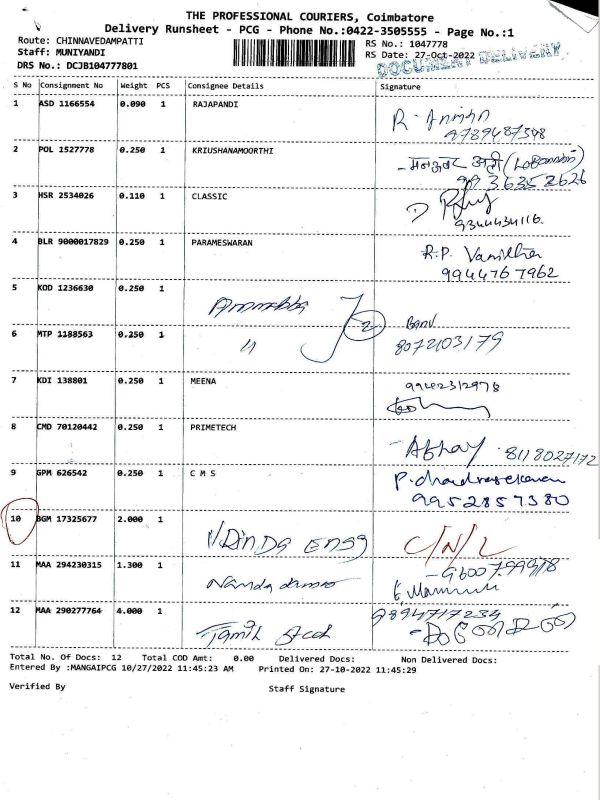 THE PROFESSIONAL COURIERS, Coimbatore
Delivery Runsheet - PCG - Phone No.:0422-3505555 - Page No.:1
Route: CHINNAVEDAMPATTI
RS No.: 1047778
Staff: MUNIYANDI
RS Date: 27-Oct-2022
DRS No.: DCJB104777801
DOCUMENT DELIVERY
S No Consignment No Weight PCS Consignee Details Signature
1 ASD 1166554 0.090 1 RAJAPANDI
9789487348
2 POL 1527778 0.250 1 KRIUSHANAMOORTHI
9936352626
3 HSR 2534026 0.110 1 CLASSIC
9344434116
4 BLR 9000017829 0.250 1 PARAMESWARAN R.P. Vanitha
9944767962
5 KOD 1236630 0.250 1
2 Banu
6 MTP 1188563 0.250 1 8072103179
7 KDI 138801 0.250 1 MEENA 9942312978
8 CMD 70120442 0.250 1 PRIMETECH
- Abhay 8118027172
9 GPM 626542 0.250 1 C M S P. chandrasekaran
9952857380
10 BGM 17325677 2.000 1
C/N/L
11 MAA 294230315 1.300 1
12 MAA 290277764 4.000 1 9894717234
Tamil
Total No. Of Docs: 12 Total COD Amt: 0.00 Delivered Docs: Non Delivered Docs:
Entered By :MANGAIPCG 10/27/2022 11:45:23 AM Printed On: 27-10-2022 11:45:29
Verified By Staff Signature